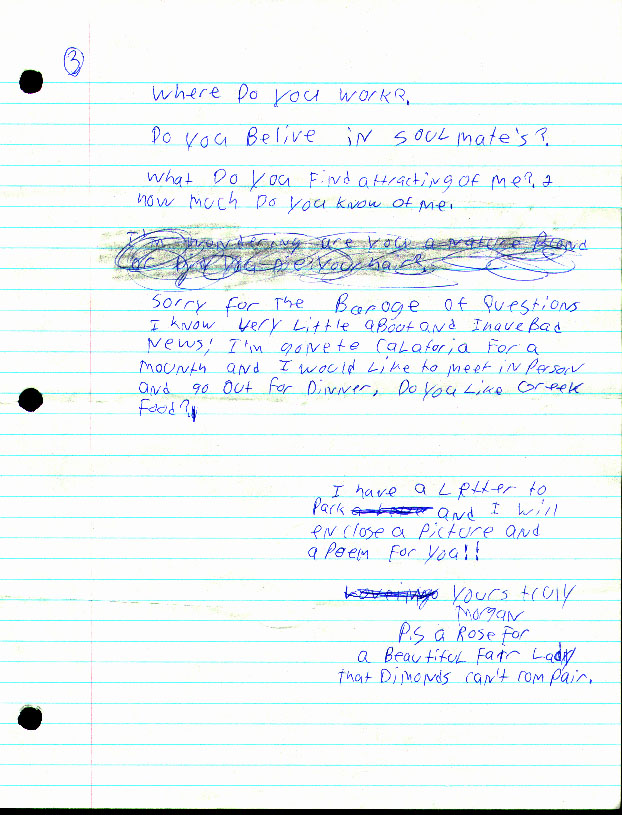 3
Where Do you work?.
Do you Belive in soulmate's?.
What Do you Find attracting of me?. &
how much Do you know of me.
I'm wondering are you a nature Blond
Sorry for the Baroge of Questions
I know very Little aBoot and I have Bad
News! I'm gonete Calatoria For a
mounth and I would Like to meet in Person
and go out for Dinner, Do you Like Greek
Food?
I have a Letter to
Park and I will
enclose a Picture and
a Poem For you!!
Yours truly
Morgan
P.S a Rose For
a Beautiful Fair Lady
that Dimonds can't compair.